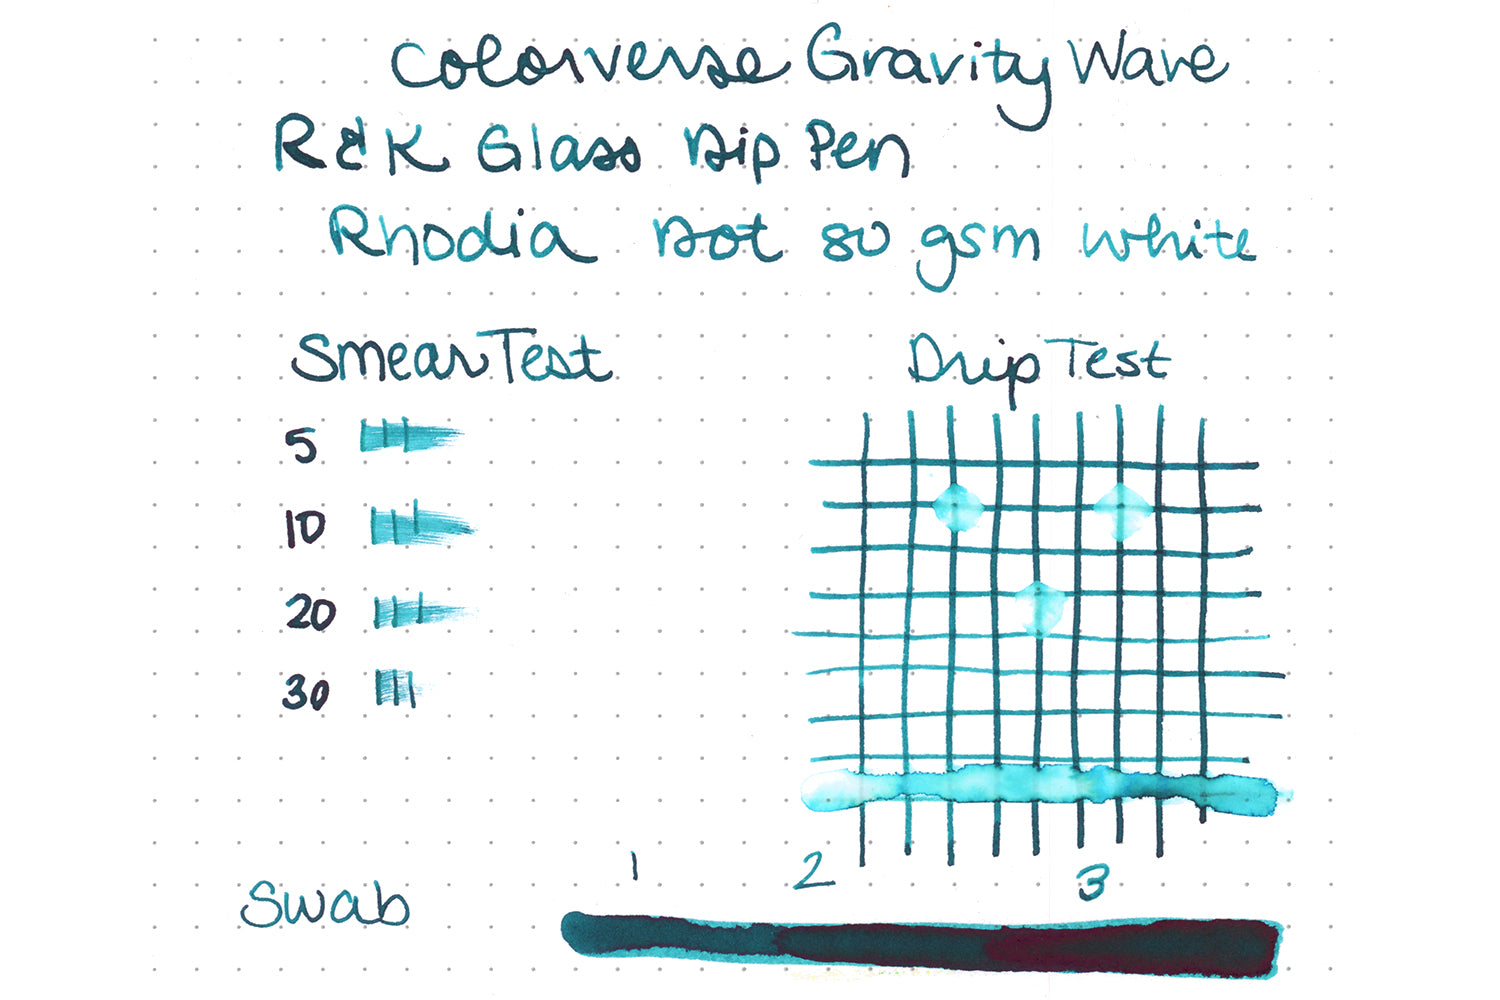 Colorverse Gravity Wave
R & K Glass Dip Pen
Rhodia Dot 80 gsm white
Smear Test
Drip Test
5
10
20
30
1 2 3
Swab